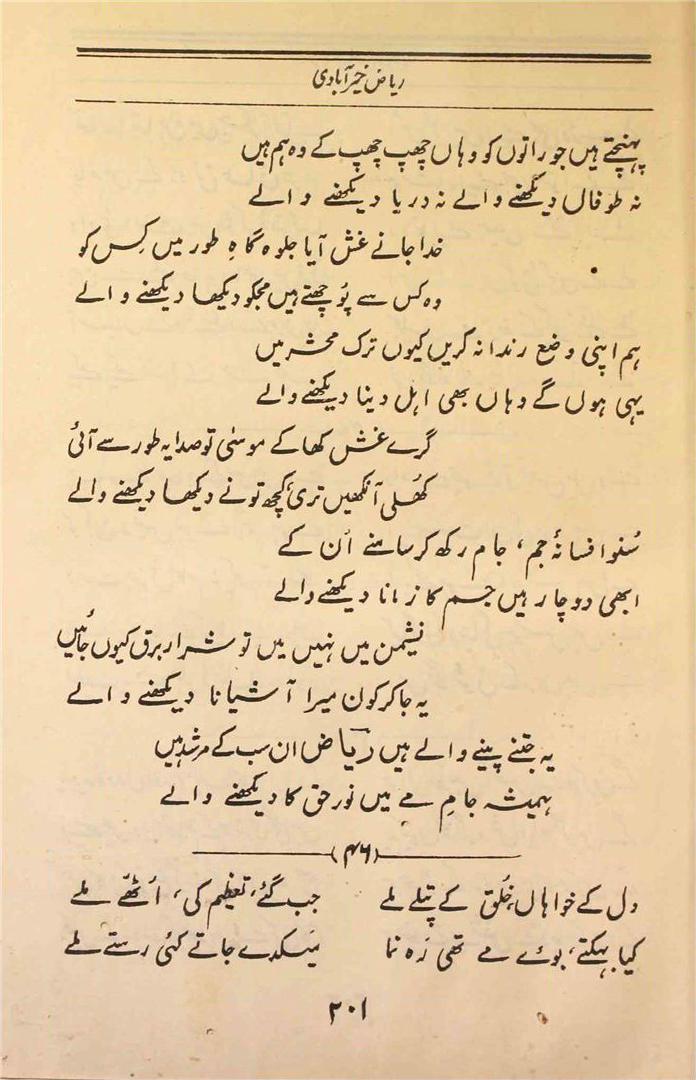 ریاض خیرآبادی
پہنچتے ہیں جو راتوں کو وہاں چھپ چھپ کے وہ ہم ہیں
نہ طوفاں دیکھنے والے نہ دریا دیکھنے والے
خدا جانے غش آیا جلوہ گاہِ طور میں کِس کو
وہ کس سے پُوچھتے ہیں مجکو دیکھا دیکھنے والے
ہم اپنی وضع رندانہ کریں کیوں ترک محشر میں
یہی ہوں گے وہاں بھی اہل دینا دیکھنے والے
گرے غش کھا کے موسٰی تو صدا یہ طور سے آئی
کھُلی آنکھیں تری کچھ تونے دیکھا دیکھنے والے
سُنو افسانۂ جم، جام رکھ کر سامنے اُن کے
ابھی دو چار ہیں جسم کا زمانا دیکھنے والے
نشیمن میں نہیں میں تو شرار برق کیوں جائیں
یہ جا کر کون میرا آشیانا دیکھنے والے
یہ جتنے پینے والے ہیں ریاؔض ان سب کے مرشد ہیں
ہمیشہ جامِ مے میں نور حق کا دیکھنے والے
(۴۶)
دل کے خواہاں، خُلق کے پتلے ملے جب گئے، تعظیم کی، اُٹھّے ملے
کیا بہکتے، بوئے مے تھی رَہ نما میَکدے جاتے کئی رستے ملے
۲۰۱